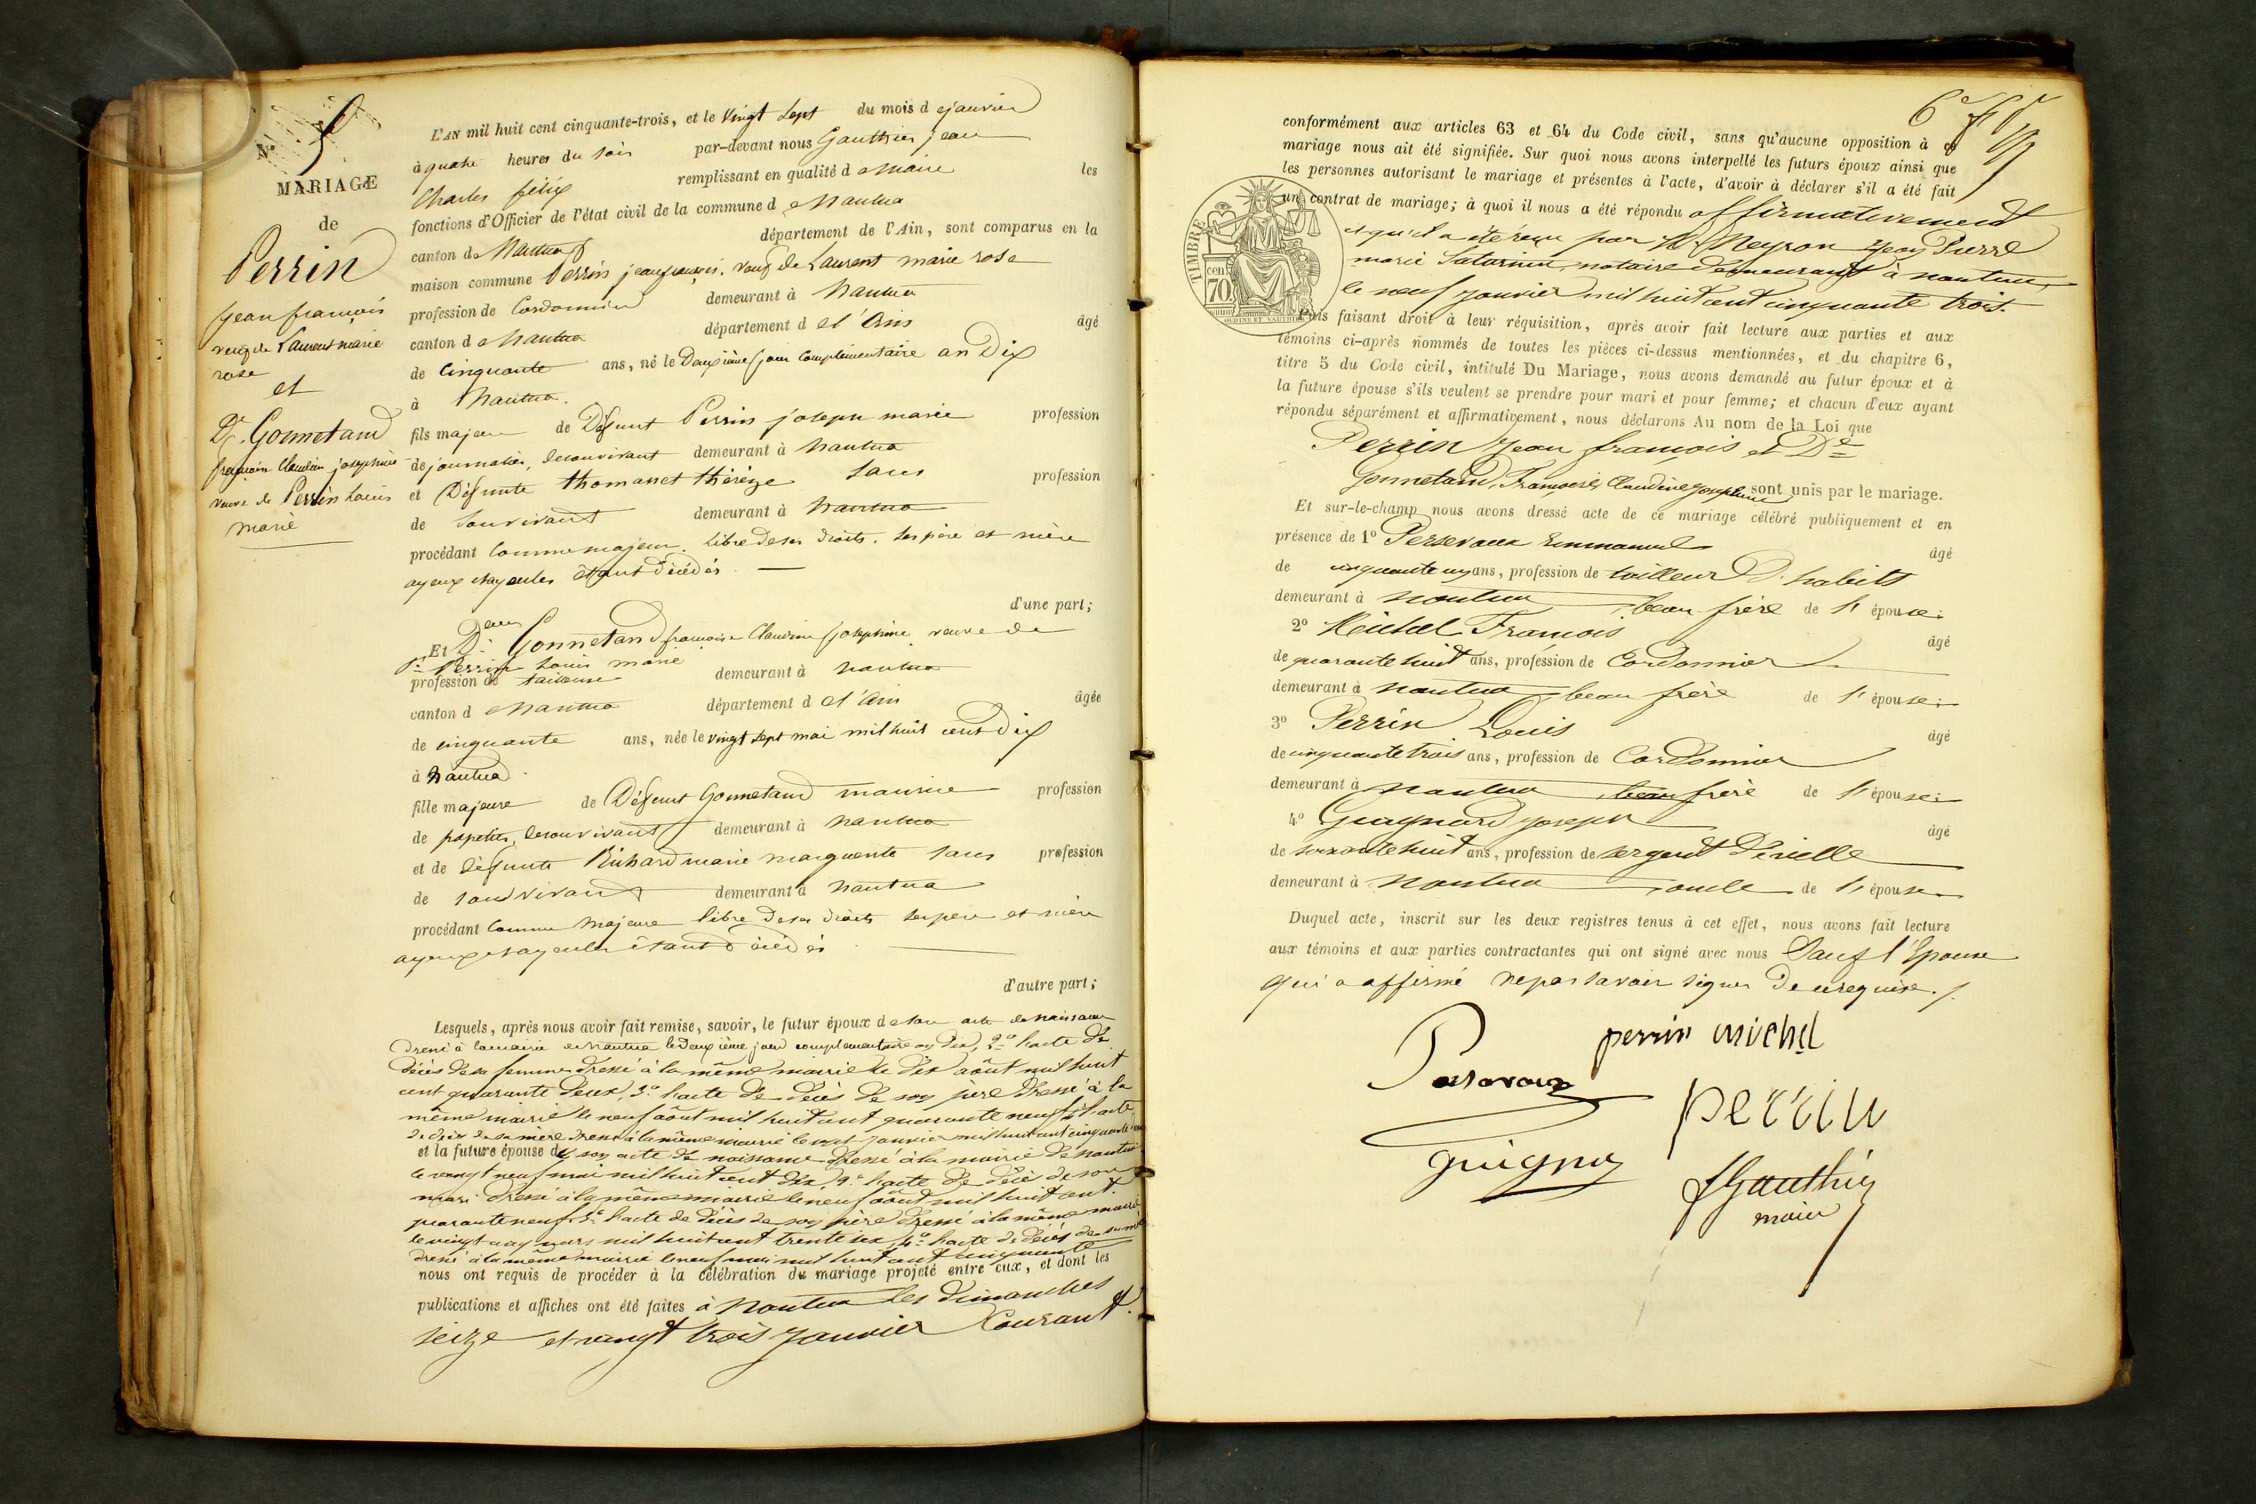 N° 5
MARIAGE
de
Perrin
Jean françois
veuf de Laurent marie
rose
et
De. Gonnetand
françoise Claudine josephine
veuve de Perrin Louis
marie
L'AN mil huit cent cinquante-trois, et le vingt sept du mois de janvier
à quatre heures du soir par-devant nous Gauthier jean
Charles félix remplissant en qualité de Maire les
fonctions d'Officier de l'état civil de la commune de Nantua
canton de Nantua département de l'Ain, sont comparus en la
maison commune Perrin jean françois, veuf de Laurent marie rose
profession de Cordonnier demeurant à Nantua
canton de Nantua département de l'Ain âgé
de cinquante ans, né le Deuxième jour complémentaire an Dix
à Nantua.
fils majeur de Défunt Perrin joseph marie profession
de journalier, de son vivant demeurant à Nantua
et Défunte thomasset thérèze sans profession
de son vivant demeurant à Nantua
procédant comme majeur, libre de ses droits, ses père et mère
ayeux et ayeules étant décédés
d'une part;
Et De. Gonnetand françoise Claudine josephine veuve de
Perrin Louis marie
profession de tailleuse demeurant à Nantua
canton de Nantua département de l'Ain âgée
de cinquante ans, née le vingt sept mai mil huit cent Dix
à Nantua.
fille majeure de Défunt Gonnetand maurice profession
de papetier, de son vivant demeurant à Nantua
et de défunte Richard marie marguerite sans profession
de son vivant demeurant à Nantua
procédant comme majeure libre de ses droits ses père et mère
ayeux et ayeules étant décédés
d'autre part;
Lesquels, après nous avoir fait remise, savoir, le futur époux de son acte de naissance
dressé à la mairie de Nantua le deuxième jour complémentaire an dix, 2° l'acte de
décès de sa femme dressé à la même mairie le dix août mil huit
cent quarante deux, 3° l'acte de décès de son père dressé à la
même mairie le neuf août mil huit cent quarante neuf 4° l'acte
de décès de sa mère dressé à la même mairie le janvier mil huit cent cinquante
et la future épouse de son acte de naissance dressé à la mairie de Nantua
le vingt neuf mai mil huit cent dix, 2° l'acte de décès de son
mari dressé à la même mairie le neuf août mil huit cent
quarante neuf, 3° l'acte de décès de son père dressé à la même mairie
le vingt cinq mars mil huit cent trente six, 4° l'acte de décès de sa mère
dressé à la même mairie le neuf mai mil huit cent cinquante
nous ont requis de procéder à la célébration du mariage projeté entre eux, et dont les
publications et affiches ont été faites à Nantua les dimanches
seize et vingt trois janvier Courant.
conformément aux articles 63 et 64 du Code civil, sans qu'aucune opposition à ce
mariage nous ait été signifiée. Sur quoi nous avons interpellé les futurs époux ainsi que
les personnes autorisant le mariage et présentes à l'acte, d'avoir à déclarer s'il a été fait
un contrat de mariage; à quoi il nous a été répondu affirmativement
et qu'il a été reçu par Me Neyron Jean Pierre
marie Saturnin, notaire demeurant à nantua,
le neuf janvier mil huit cent cinquante trois.
TIMBRE
70 cen
Puis faisant droit à leur réquisition, après avoir fait lecture aux parties et aux
témoins ci-après nommés de toutes les pièces ci-dessus mentionnées, et du chapitre 6,
titre 5 du Code civil, intitulé Du Mariage, nous avons demandé au futur époux et à
la future épouse s'ils veulent se prendre pour mari et pour femme; et chacun d'eux ayant
répondu séparément et affirmativement, nous déclarons Au nom de la Loi que
Perrin Jean françois et De
Gonnetand, Françoise Claudine Josephine sont unis par le mariage.
Et sur-le-champ nous avons dressé acte de ce mariage célébré publiquement et en
présence de 1° Emmanuel âgé
de cinquante un ans, profession de tailleur d'habits
demeurant à nantua, beau frère de l'épouse;
2° Michel François âgé
de quarante huit ans, profession de Cordonnier
demeurant à nantua, beau frère de l'épouse;
3° Perrin Louis âgé
de cinquante trois ans, profession de Cordonnier
demeurant à nantua, beau frère de l'épouse;
4° Joseph âgé
de soixante huit ans, profession de sergent de ville
demeurant à nantua, oncle de l'épouse
Duquel acte, inscrit sur les deux registres tenus à cet effet, nous avons fait lecture
aux témoins et aux parties contractantes qui ont signé avec nous Sauf l'Epouse
qui a affirmé ne pas savoir signer de ce requise.
perrin michel
perrin
Gauthier
maire